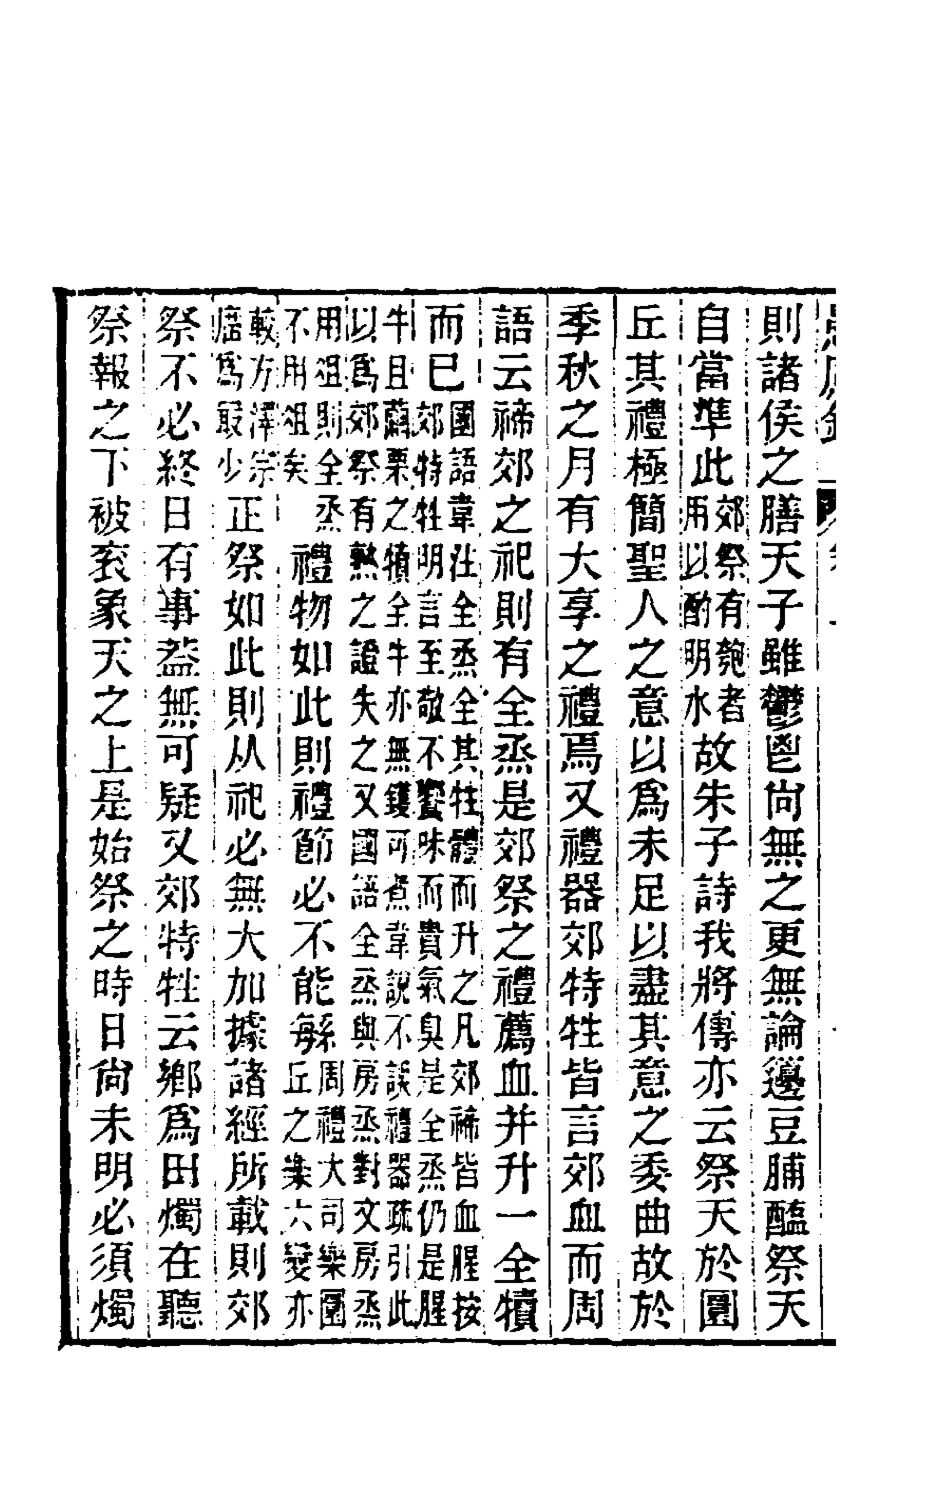 則諸侯之膳天子雖鬱鬯尙無之更無論籩豆脯醢祭天
自當準此郊祭有匏者用以酌明水故朱子詩我將傳亦云祭天於圜
丘其禮極簡聖人之意以爲未足以盡其意之委曲故於
季秋之月有大享之禮焉又禮器郊特牲皆言郊血而周
語云禘郊之祀則有全烝是郊祭之禮薦血并升一全犢
而巳國語韋注全烝全其牲體而升之凡郊禘皆血腥按郊特牲明言至敬不饗味而貴氣臭是全烝仍是腥
牛且繭栗之犢全牛亦無鑊可煮韋說不誤禮器疏引此以爲郊祭有熟之證失之又國語全烝與房烝對文房烝
用俎則全烝不用俎矣禮物如此則禮節必不能緐周禮大司樂圜丘之樂六變亦
較方澤宗廟爲最少正祭如此則从祀必無大加據諸經所載則郊
祭不必終日有事葢無可疑又郊特牲云鄉爲田燭在聽
祭報之下被衮象天之上是始祭之時日尙未明必須燭